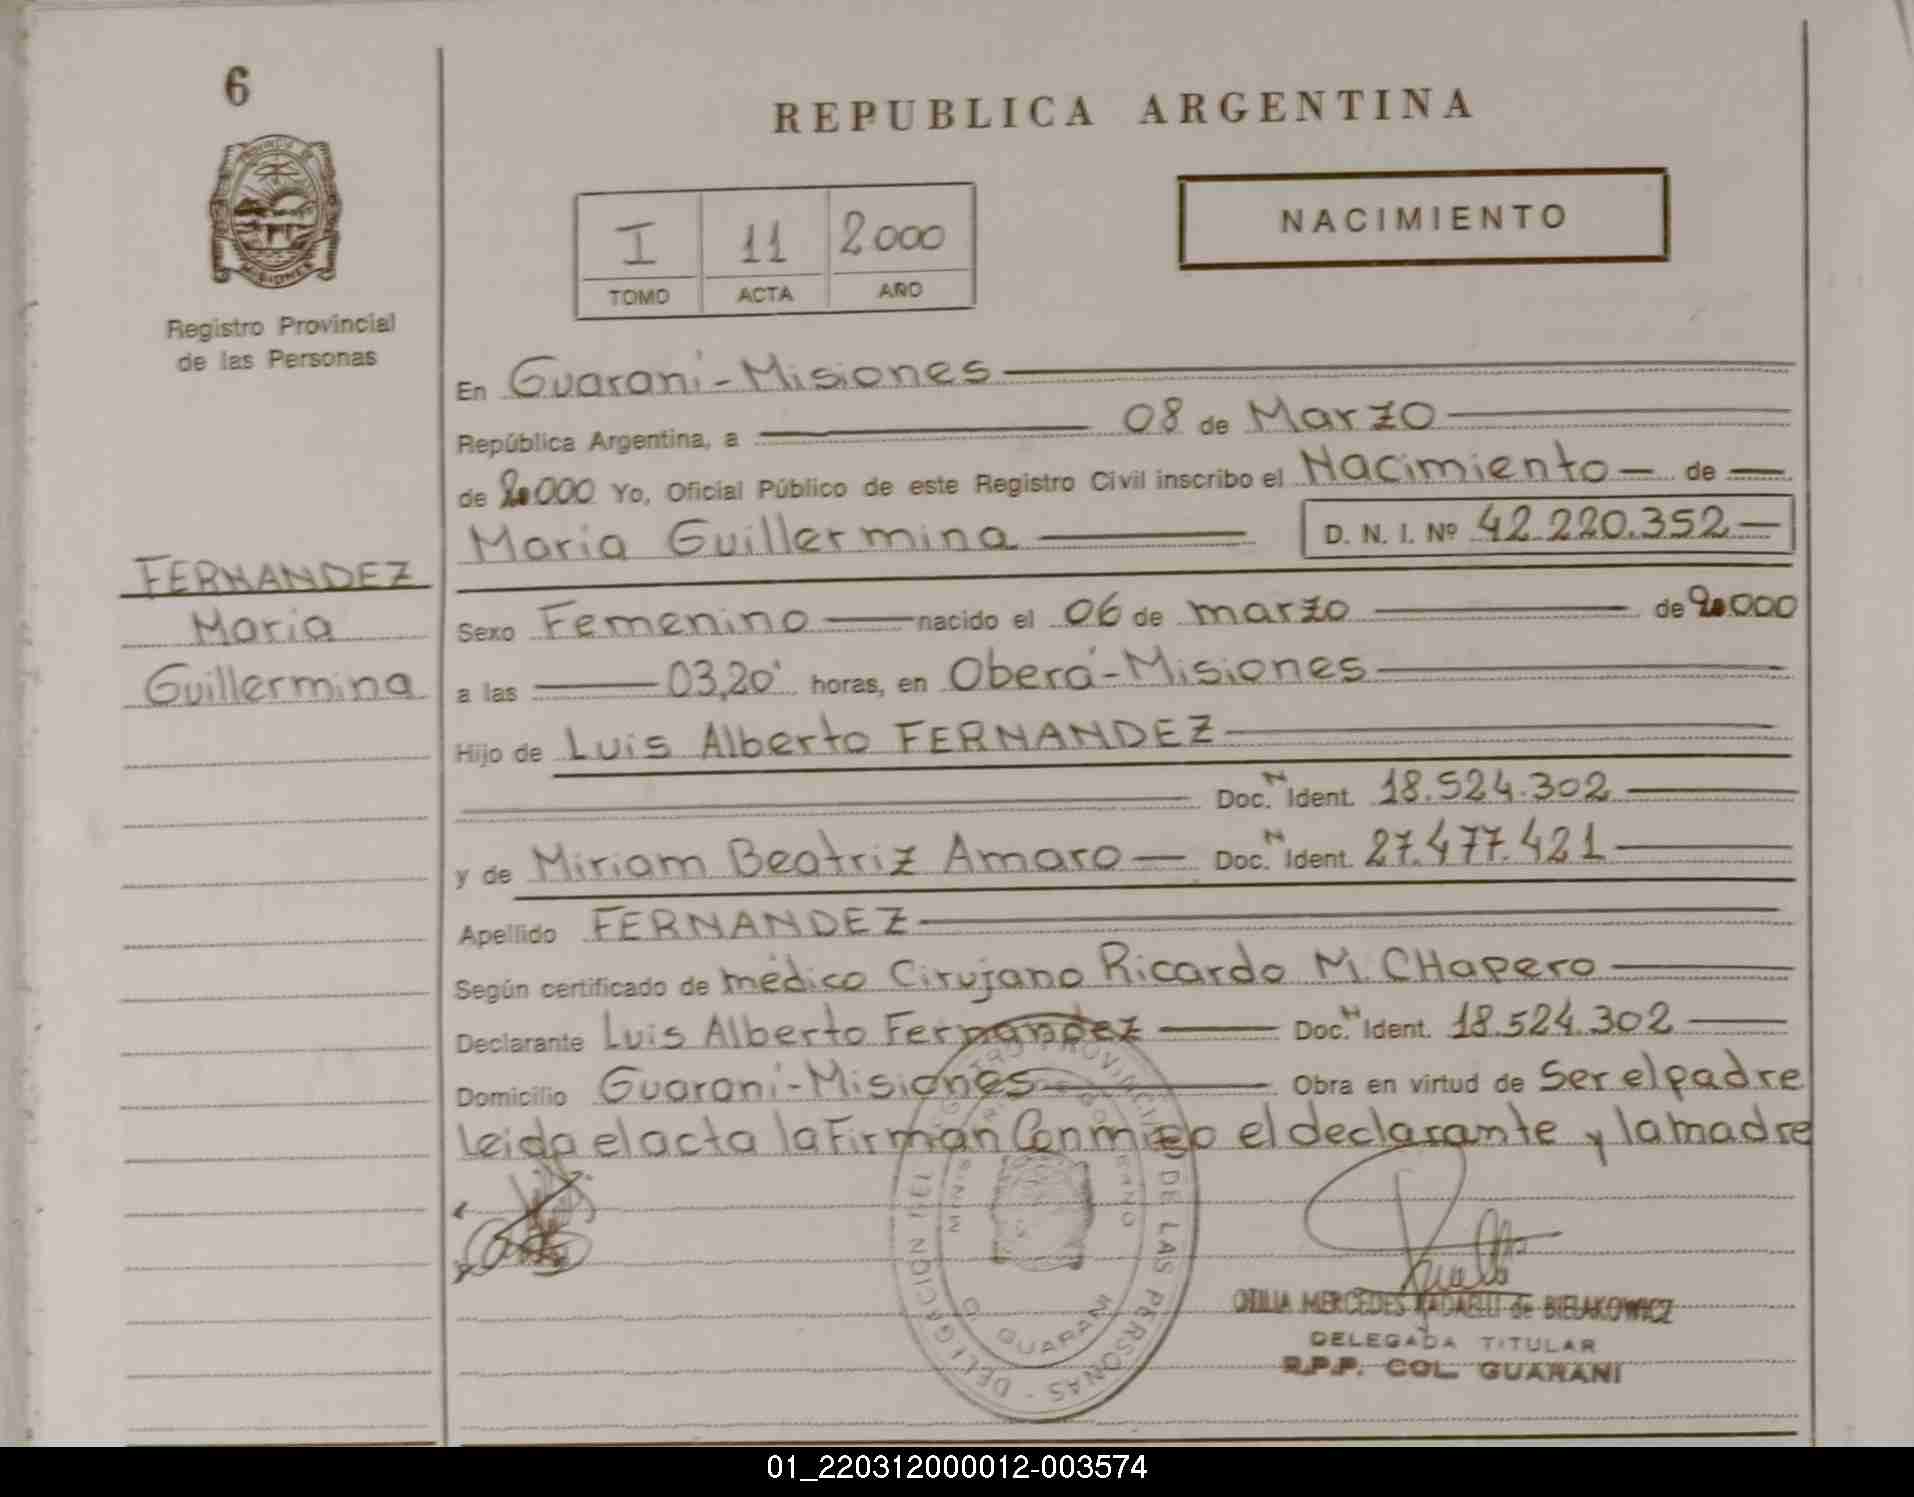 6
REPUBLICA ARGENTINA
NACIMIENTO
I 11 2000
TOMO ACTA AÑO
PROVINCIA DE
MISIONES
Registro Provincial
de las Personas
En Guaraní-Misiones
República Argentina, a 08 de Marzo
de 2000 Yo, Oficial Público de este Registro Civil inscribo el Nacimiento de
Maria Guillermina D. N. I. Nº 42.220.352
FERNANDEZ
Maria
Guillermina
Sexo Femenino nacido el 06 de marzo de 2000
a las 03,20' horas, en Oberá-Misiones
Hijo de Luis Alberto FERNANDEZ
Doc. N Ident. 18.524.302
y de Miriam Beatriz Amaro Doc. N Ident. 27.477.421
Apellido FERNANDEZ
Según certificado de médico Cirujano Ricardo M. CHapero
Declarante Luis Alberto Fernandez Doc. N Ident. 18.524.302
Domicilio Guaraní-Misiones Obra en virtud de Ser el padre
leida el acta la Firman Conmigo el declarante y la madre
DELEGACION DEL REGISTRO PROVINCIAL DE LAS PERSONAS
GUARANI
ODILIA MERCEDES de BIELAKOWICZ
DELEGADA TITULAR
R.P.P. COL. GUARANI
01_220312000012-003574